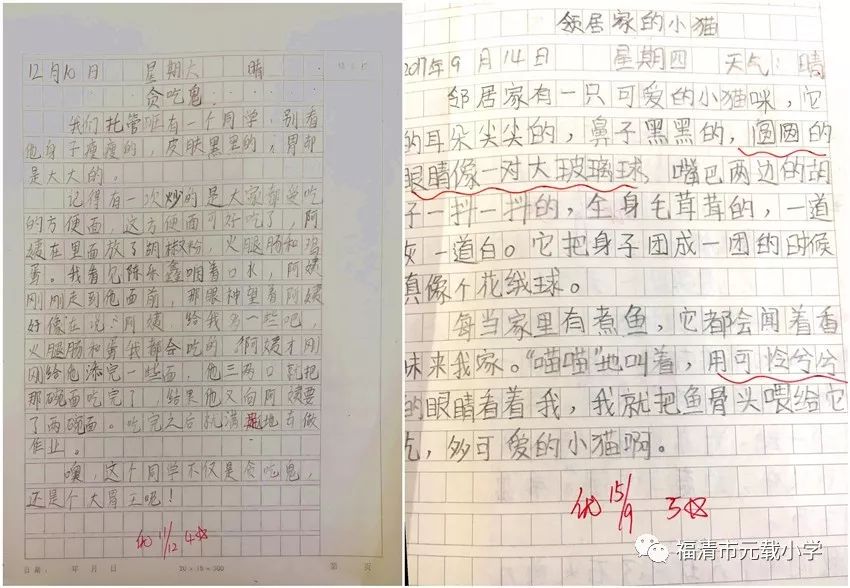 12月10日 星期六 晴
贪吃鬼
我们托管班有一个同学,别看
他身子瘦瘦的,皮肤黑黑的,胃却
是大大的。
记得有一次炒的是大家都爱吃
的方便面,这方便面可好吃了,阿
姨在里面放了胡椒粉,火腿肠和鸡
蛋。我看见陈乐鑫咽着口水,阿姨
刚刚走到他面前,那眼神望着阿姨
好像在说:"阿姨,给我多一些吧,
火腿肠和蛋我都会吃的。"阿姨才刚
刚给他添完一些面,他三两口就把
那碗面吃完了,结果他又向阿姨要
了两碗面。吃完之后就满足地去做
作业。
噢,这个同学不仅是贪吃鬼,
还是个大胃王吧!
优 11/12 4☆
日期: 年 月 日
20×15=300
第 页
邻居家的小猫
2017年9月14日 星期四 天气:晴
邻居家有一只可爱的小猫咪,它
的耳朵尖尖的,鼻子黑黑的,圆圆的
眼睛像一对大玻璃球,嘴巴两边的胡
子一抖一抖的,全身毛茸茸的,一道
灰一道白。它把身子团成一团的时候
真像个花绒球。
每当家里有煮鱼,它都会闻着香
味来我家。"喵喵"地叫着,用可怜兮兮
的眼睛看着我,我就把鱼骨头喂给它
吃,多可爱的小猫啊。
优 15/9 5☆
福清市元载小学